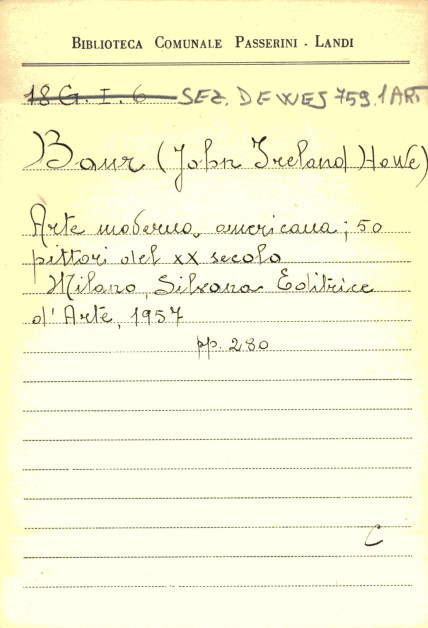 BIBLIOTECA COMUNALE PASSERINI - LANDI
18 G. I. 6 SEZ. DEWEY 759.1 ART
Baur (John Ireland Howe)
Arte moderna americana; 50
pittori del XX secolo
Milano, Silvana Editrice
d'Arte, 1957
pp. 280
C